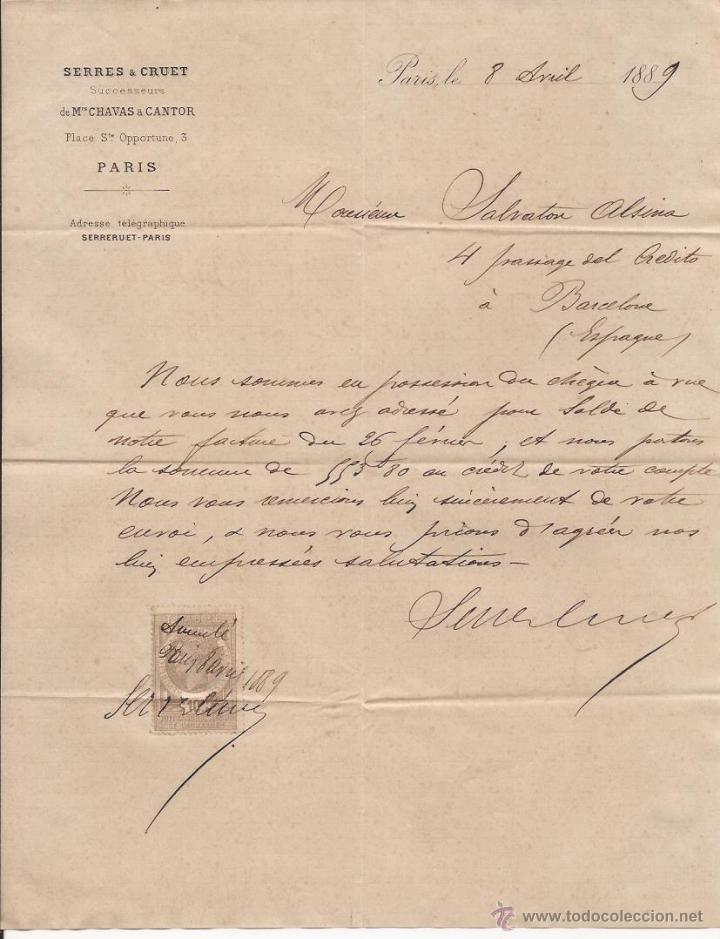 SERRES & CRUET
Successeurs
de Mrs CHAVAS & CANTOR
Place Ste Opportune, 3
PARIS
Adresse télégraphique
SERRERUET-PARIS
Paris, le 8 Avril 1889
Monsieur Salvator Alsina
4 passage del Credito
à Barcelone
(Espagne)
Nous sommes en possession du chèque à vue
que vous nous avez adressé pour solde de
notre facture du 26 février, et nous portons
la somme de 553 80 au crédit de votre compte
Nous vous remercions bien sincèrement de votre
envoi, & nous vous prions d'agréer nos
bien empressées salutations -
Serres Cruet
Annulé
Paris 8 avril 1889
Serres Cruet
www.todocoleccion.net